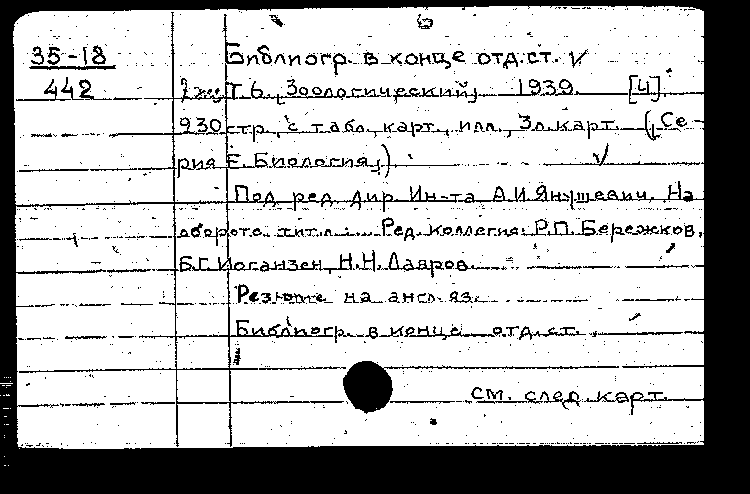 6
35-18 Библиогр. в конце отд.ст. V
442 2 экз Т.6. „Зоологический„ 1939. [4].
930 стр., с табл., карт., илл., 3 л. карт. („Се-
рия Е. Биология„). V
Под ред. дир. Ин-та А.И. Янушевич. На
обороте тит.л.: Ред. коллегия: Р.П. Бережков,
Б.Г. Иоганзен, Н.Н. Лавров.
Резюме на англ. яз.
Библиогр. в конце отд.ст.
см. след. карт.